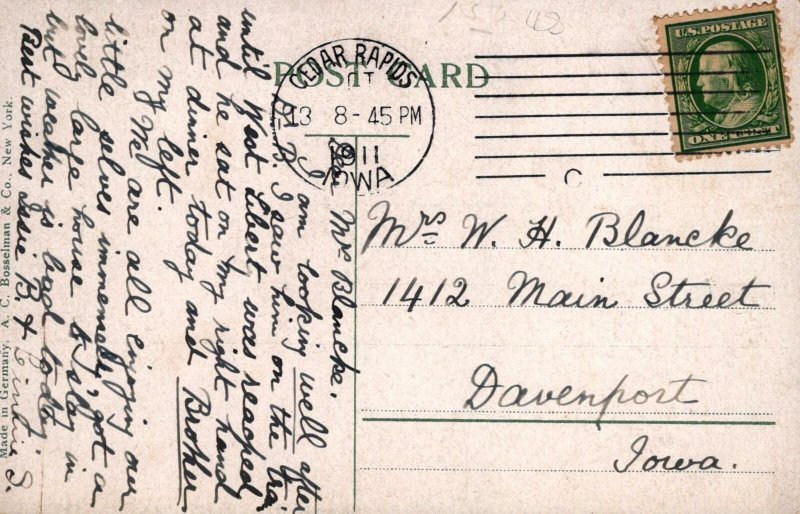 1542
POST CARD
CEDAR RAPIDS
13 8-45 PM
1911
IOWA
U.S. POSTAGE
ONE CENT
C
Dear Mrs Blancke.
I am looking well after
Dr. B. I saw him on the trai
until West Liberty was reached
and he sat on my right hand
at dinner today and Brother
on my left.
We are all enjoying our
little selves immensely, got a
lovely large house to stay in
but weather is bad today.
Best wishes Elsie B. &
S.
Mrs W. H. Blancke
1412 Main Street
Davenport
Iowa.
Made in Germany. A. C. Bosselman & Co., New York.